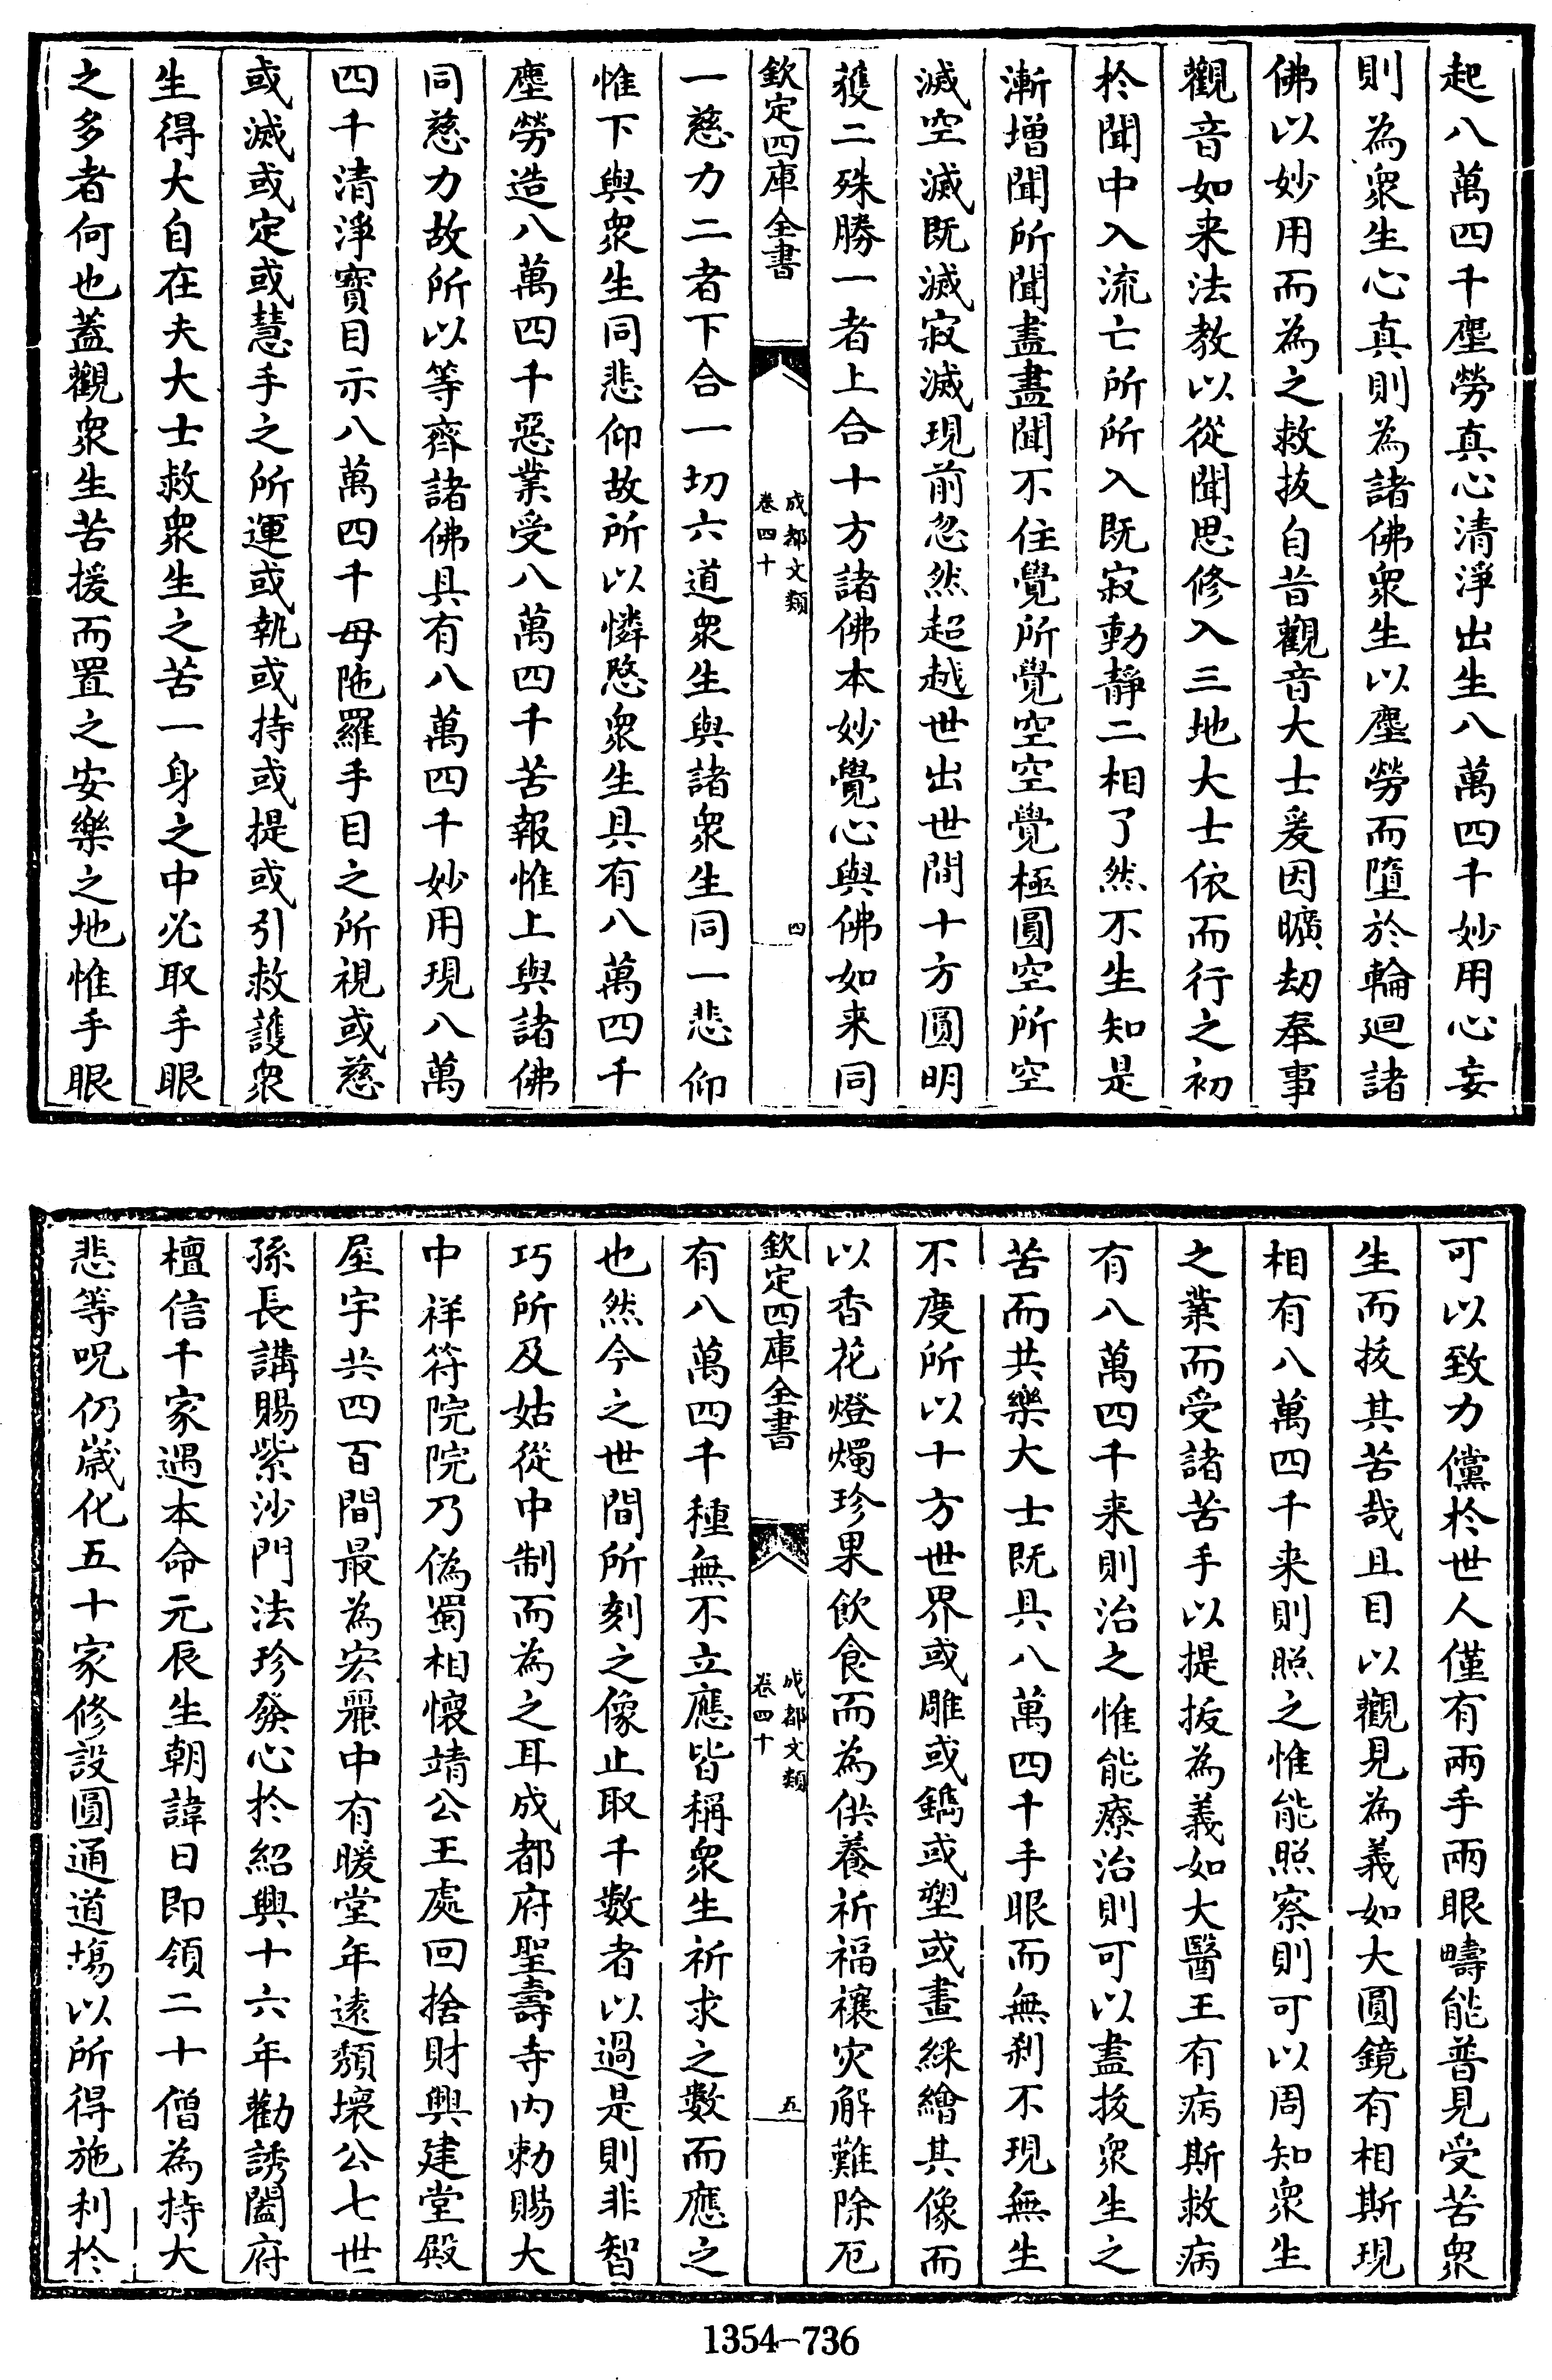 起八萬四千塵勞真心清淨出生八萬四千妙用心妄
則為衆生心真則為諸佛衆生以塵勞而墮於輪廻諸
佛以妙用而為之救抜自昔觀音大士爰因曠劫奉事
觀音如来法教以從聞思修入三地大士依而行之初
於聞中入流亡所所入既寂動靜二相了然不生知是
漸增聞所聞盡盡聞不住覺所覺空空覺極圓空所空
滅空滅既滅寂滅現前忽然超越世出世間十方圓明
獲二殊勝一者上合十方諸佛本妙覺心與佛如来同
欽定四庫全書
成都文類
卷四十
四
一慈力二者下合一切六道衆生與諸衆生同一悲仰
惟下與衆生同悲仰故所以憐愍衆生具有八萬四千
塵勞造八萬四千惡業受八萬四千苦報惟上與諸佛
同慈力故所以等齊諸佛具有八萬四千妙用現八萬
四千清淨寳目示八萬四千母陁羅手目之所視或慈
或滅或定或慧手之所運或執或持或提或引救護衆
生得大自在夫大士救衆生之苦一身之中必取手眼
之多者何也蓋觀衆生苦援而置之安樂之地惟手眼
可以致力儻於世人僅有兩手兩眼疇能普見受苦衆
生而抜其苦哉且目以觀見為義如大圓鏡有相斯現
相有八萬四千来則照之惟能照察則可以周知衆生
之業而受諸苦手以提抜為義如大醫王有病斯救病
有八萬四千来則治之惟能療治則可以盡抜衆生之
苦而共樂大士既具八萬四千手眼而無刹不現無生
不度所以十方世界或雕或鐫或塑或畫綵繪其像而
以香花燈燭珍果飲食而為供養祈福禳灾解難除厄
欽定四庫全書
成都文類
卷四十
五
有八萬四千種無不立應皆稱衆生祈求之數而應之
也然今之世間所刻之像止取千數者以過是則非智
巧所及姑從中制而為之耳成都府聖壽寺内勅賜大
中祥符院院乃偽蜀相懷靖公王處回捨財興建堂殿
屋宇共四百間最為宏麗中有暖堂年逺頽壞公七世
孫長講賜紫沙門法珍發心於紹興十六年勸誘闔府
檀信千家遇本命元辰生朝諱日即領二十僧為持大
悲等呪仍歳化五十家修設圓通道塲以所得施利於
1354-736